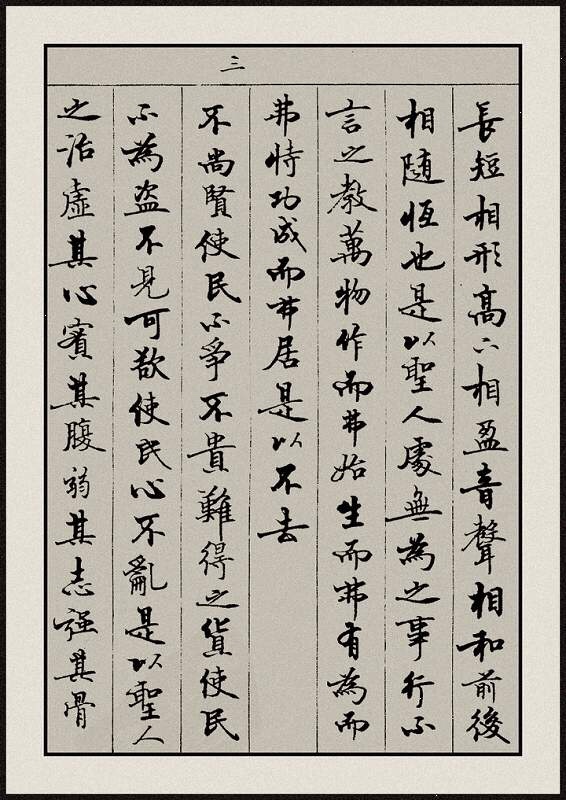 長短相形高下相盈音聲相和前後
相隨恆也是以聖人處無為之事行不
言之教萬物作而弗始生而弗有為而
弗恃功成而弗居是以不去
三
不尚賢使民不爭不貴難得之貨使民
不為盜不見可欲使民心不亂是以聖人
之治虛其心實其腹弱其志强其骨